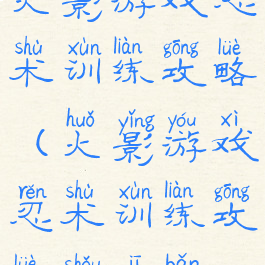 火影游戏忍
shù xùn liàn gōng lüè
术训练攻略
huǒ yǐng yóu xì
（火影游戏
rěn shù xùn liàn gōng
忍术训练攻
lüè shǒu jī bǎn